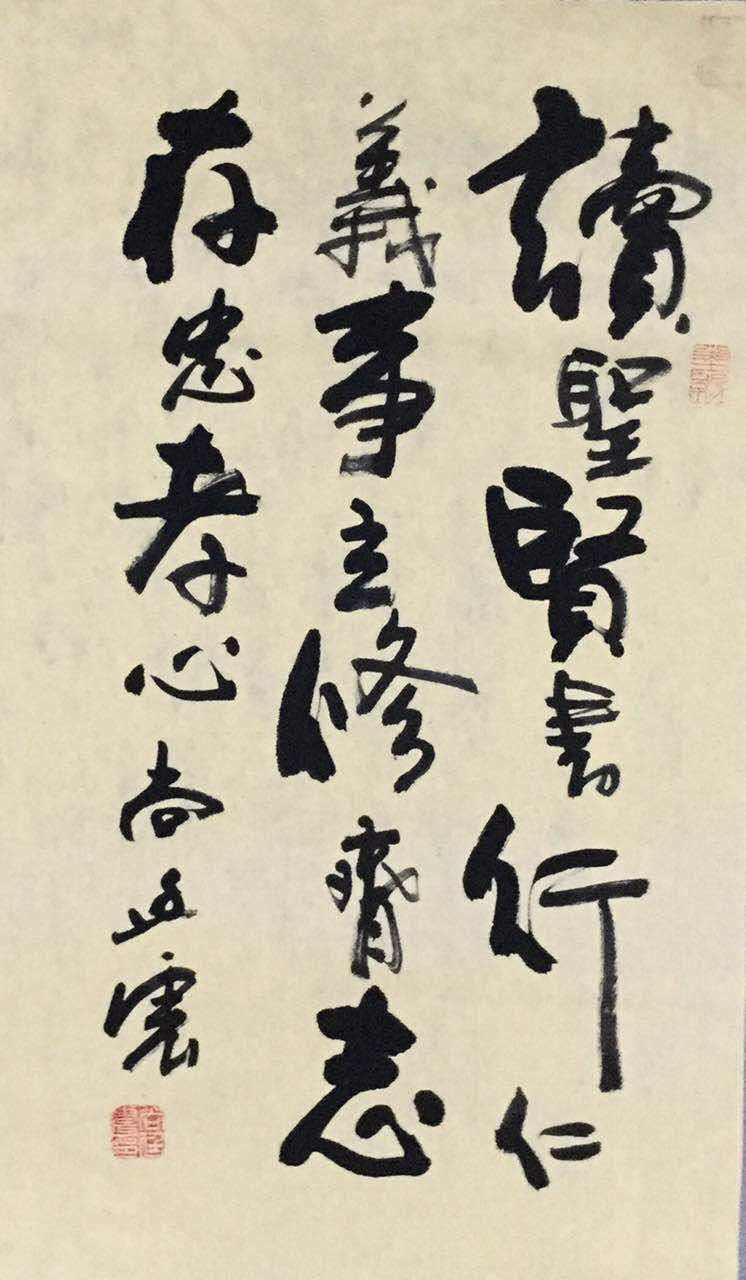 讀聖賢書行仁
義事立修齊志
存忠孝心尚丘震